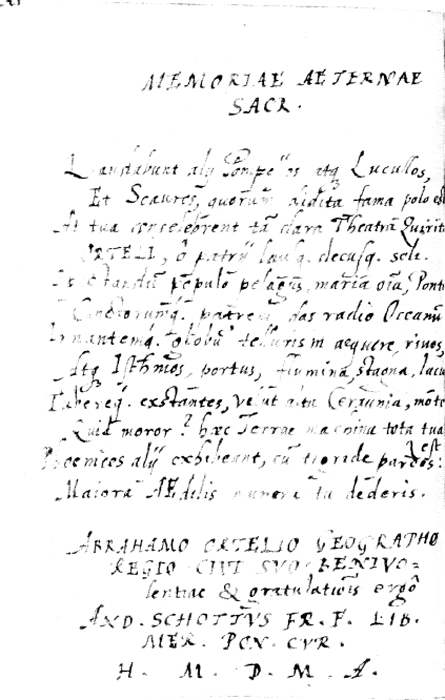 MEMORIAE AETERNAE
SACR.
Laudabunt alij Pompeios atq Lucullos,
Et Scauros, quorum addita fama polo est
At tua concelebrent tā clara Theatra Quirit
ORTELI, ô patrij lausq. decusq. soli.
populo pelagus, maria oīa, Pont
patrem, das radio Oceanū
telluris in aequore, rivos,
Atq Isthmos, portus, flumina, stagna, lacu
exstantes, velut alta Ceraunia, mōte
Quid moror? haec Terrae machina tota tua est
alij exhibeant, cū pardos:
Maiora AEdilis munera tu dederis.
ABRAHAMO ORTELIO GEOGRAPHO
REGIO CIVI SVO BENIVO=
lentiae & gratulatiōis ergô
AND. SCHOTTVS FR. F. LIB.
MER. PON. CVR.
H. M. D. M. A.